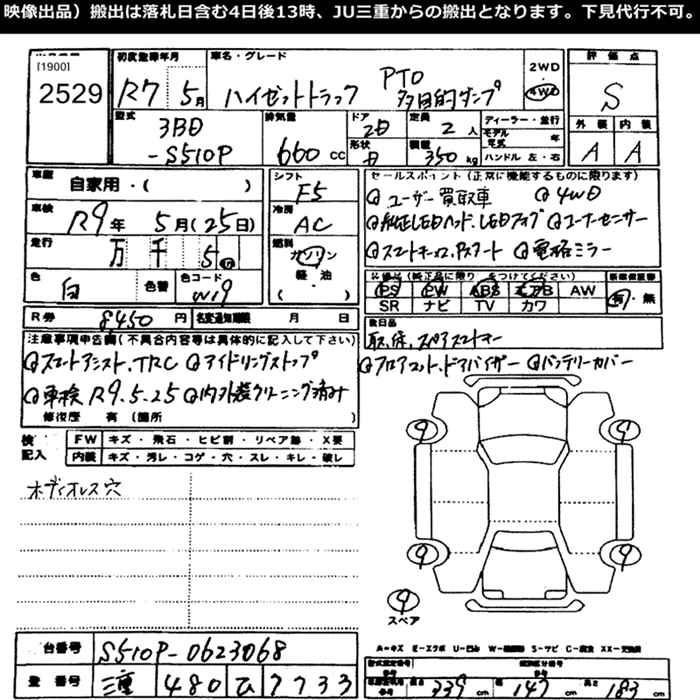 映像出品）搬出は落札日含む4日後13時、JU三重からの搬出となります。下見代行不可。
[1900]
2529
初度登録年月
R7 5月
車名・グレード
ハイゼットトラック PTO 多目的ダンプ
2WD・4WD
評価点
S
型式
3BD-S510P
排気量
660 cc
ドア
2D
形状
定員
2人
積載
350 kg
ディーラー・並行
モデル年式 年
ハンドル 左・右
外装 内装
A A
車歴
自家用・( )
車検
R9年 5月(25日)
走行
万 千 5 km
色
白
色替
色コード
W19
シフト
F5
冷房
AC
燃料
ガソリン
軽・油
( )
セールスポイント（正常に機能するものに限ります）
ユーザー買取車 4WD
純正LEDヘッド、LEDフォグ コーナーセンサー
スマートキー、Pスタート 電格ミラー
PS PW ABS エアB AW
SR ナビ TV カワ
有・無
R券 8450円
名変通知期限 月 日
後日品
取、保、スペアスマートキー
フロアマット、ドアバイザー バッテリーカバー
注意事項申告欄（不具合内容等は具体的に記入して下さい）
スマートアシスト、TRC アイドリングストップ
車検R9.5.25 内外装クリーニング済み
修復歴 有（箇所 ）
検 記入
FW キズ・飛石・ヒビ割・リペア跡・X要
内装 キズ・汚レ・コゲ・穴・スレ・キレ・破レ
ボディオレス穴
9 9
9 9
9
スペア
A＝キズ E＝エクボ U＝凹み
台番号 S510P-0623068
登番号 三重 480 ひ 7733
長さ 339 cm 幅 147 cm 高さ 183 cm